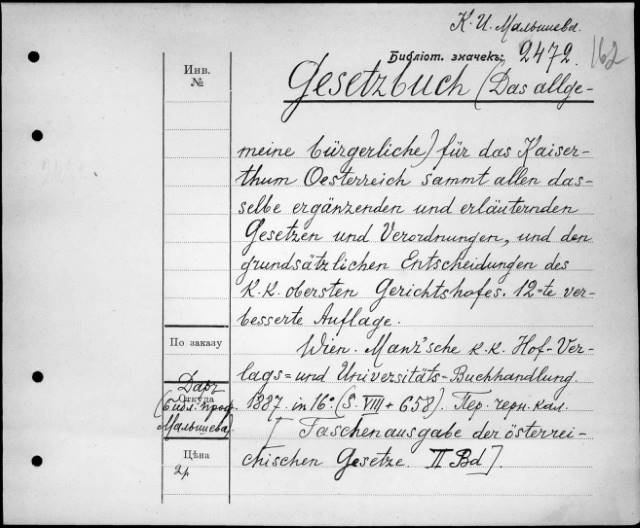 К. И. Малышева.
Библіот. значекъ: 2472. 162
Инв.
№
Gesetzbuch (Das allge-
meine bürgerliche) für das Kaiser-
thum Oesterreich sammt allen das-
selbe ergänzenden und erläuternden
Gesetzen und Verordnungen, und den
grundsätzlichen Entscheidungen des
K. K. obersten Gerichtshofes. 12-te ver-
besserte Auflage.
По заказу
Wien. Manz'sche K. K. Hof-Ver-
lags= und Universitäts-Buchhandlung.
Даръ
Откуда
(Библ. проф.
Малышева)
1887. in 16°. (S. VIII + 658). Пер. черн. кал.
[Taschenausgabe der österrei-
chischen Gesetze. II Bd].
Цѣна
2 р.